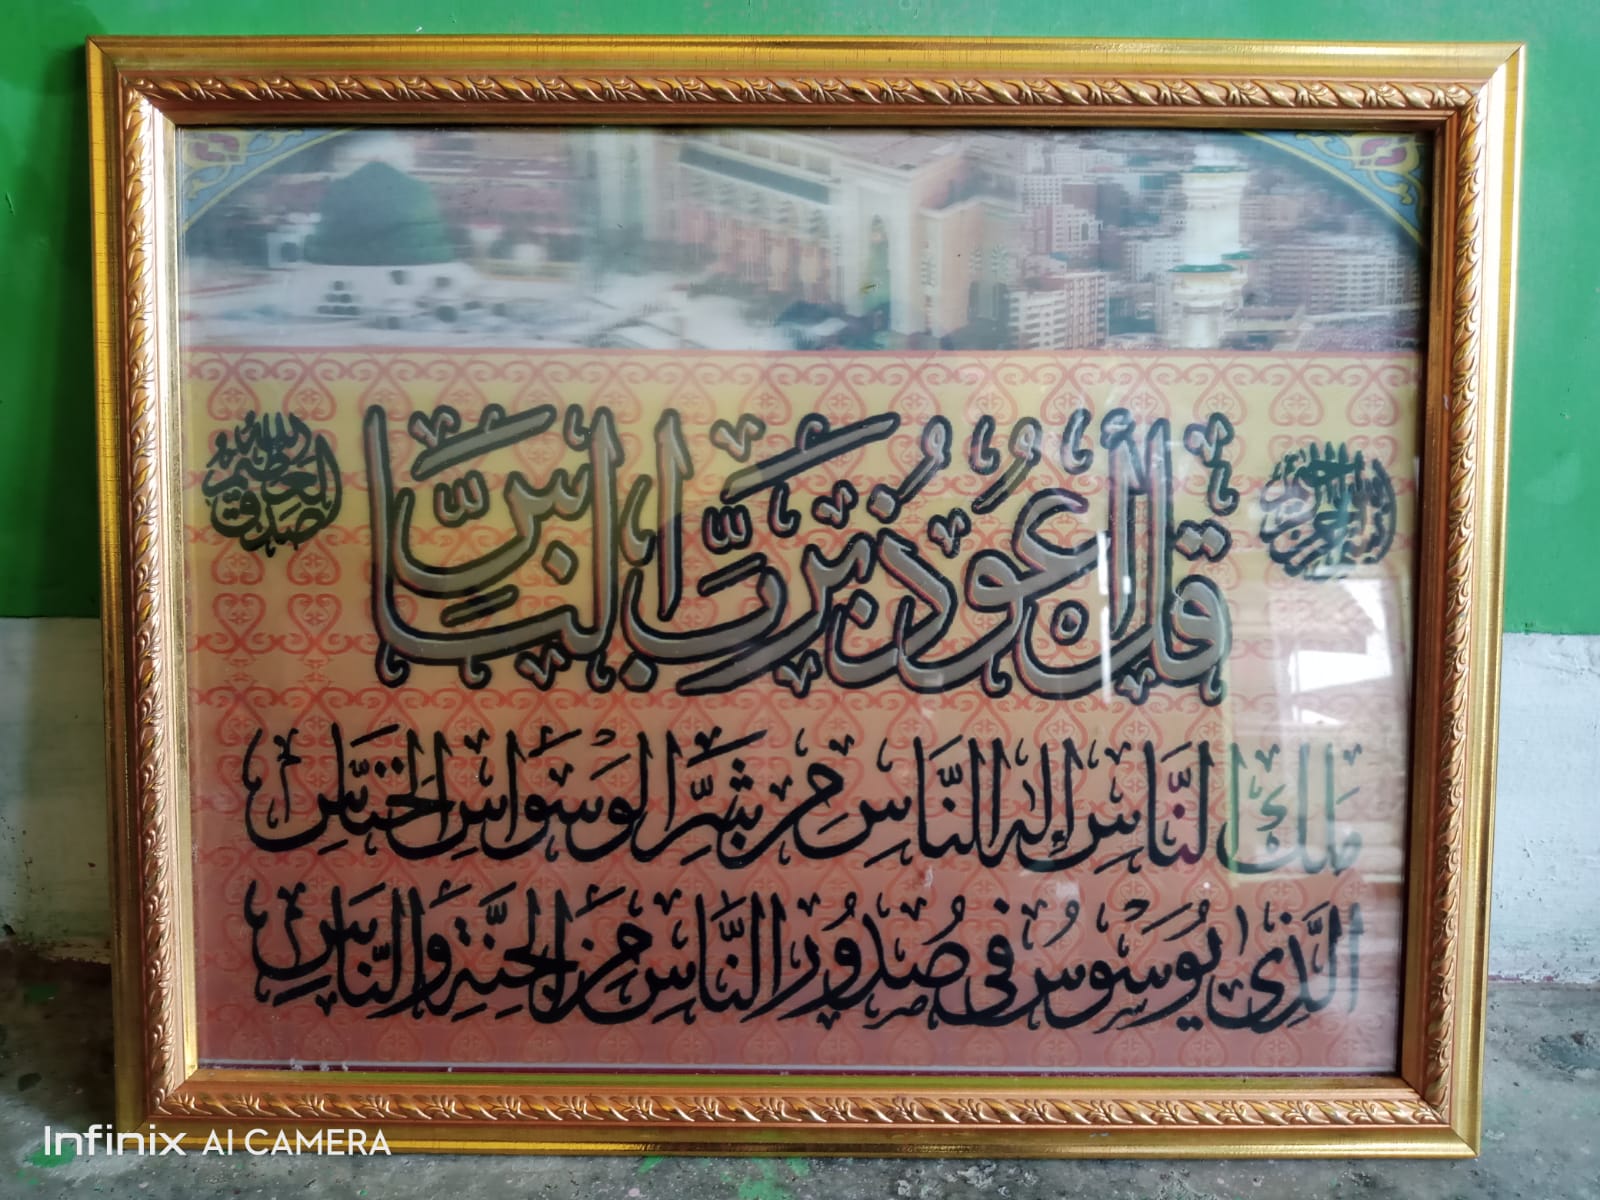 بسم الله الرحمن الرحيم
قُلْ أَعُوذُ بِرَبِّ النَّاسِ
مَلِكِ النَّاسِ إِلَهِ النَّاسِ مِنْ شَرِّ الْوَسْوَاسِ الْخَنَّاسِ
الَّذِي يُوَسْوِسُ فِي صُدُورِ النَّاسِ مِنَ الْجِنَّةِ وَالنَّاسِ
صدق الله العظيم
Infinix AI CAMERA